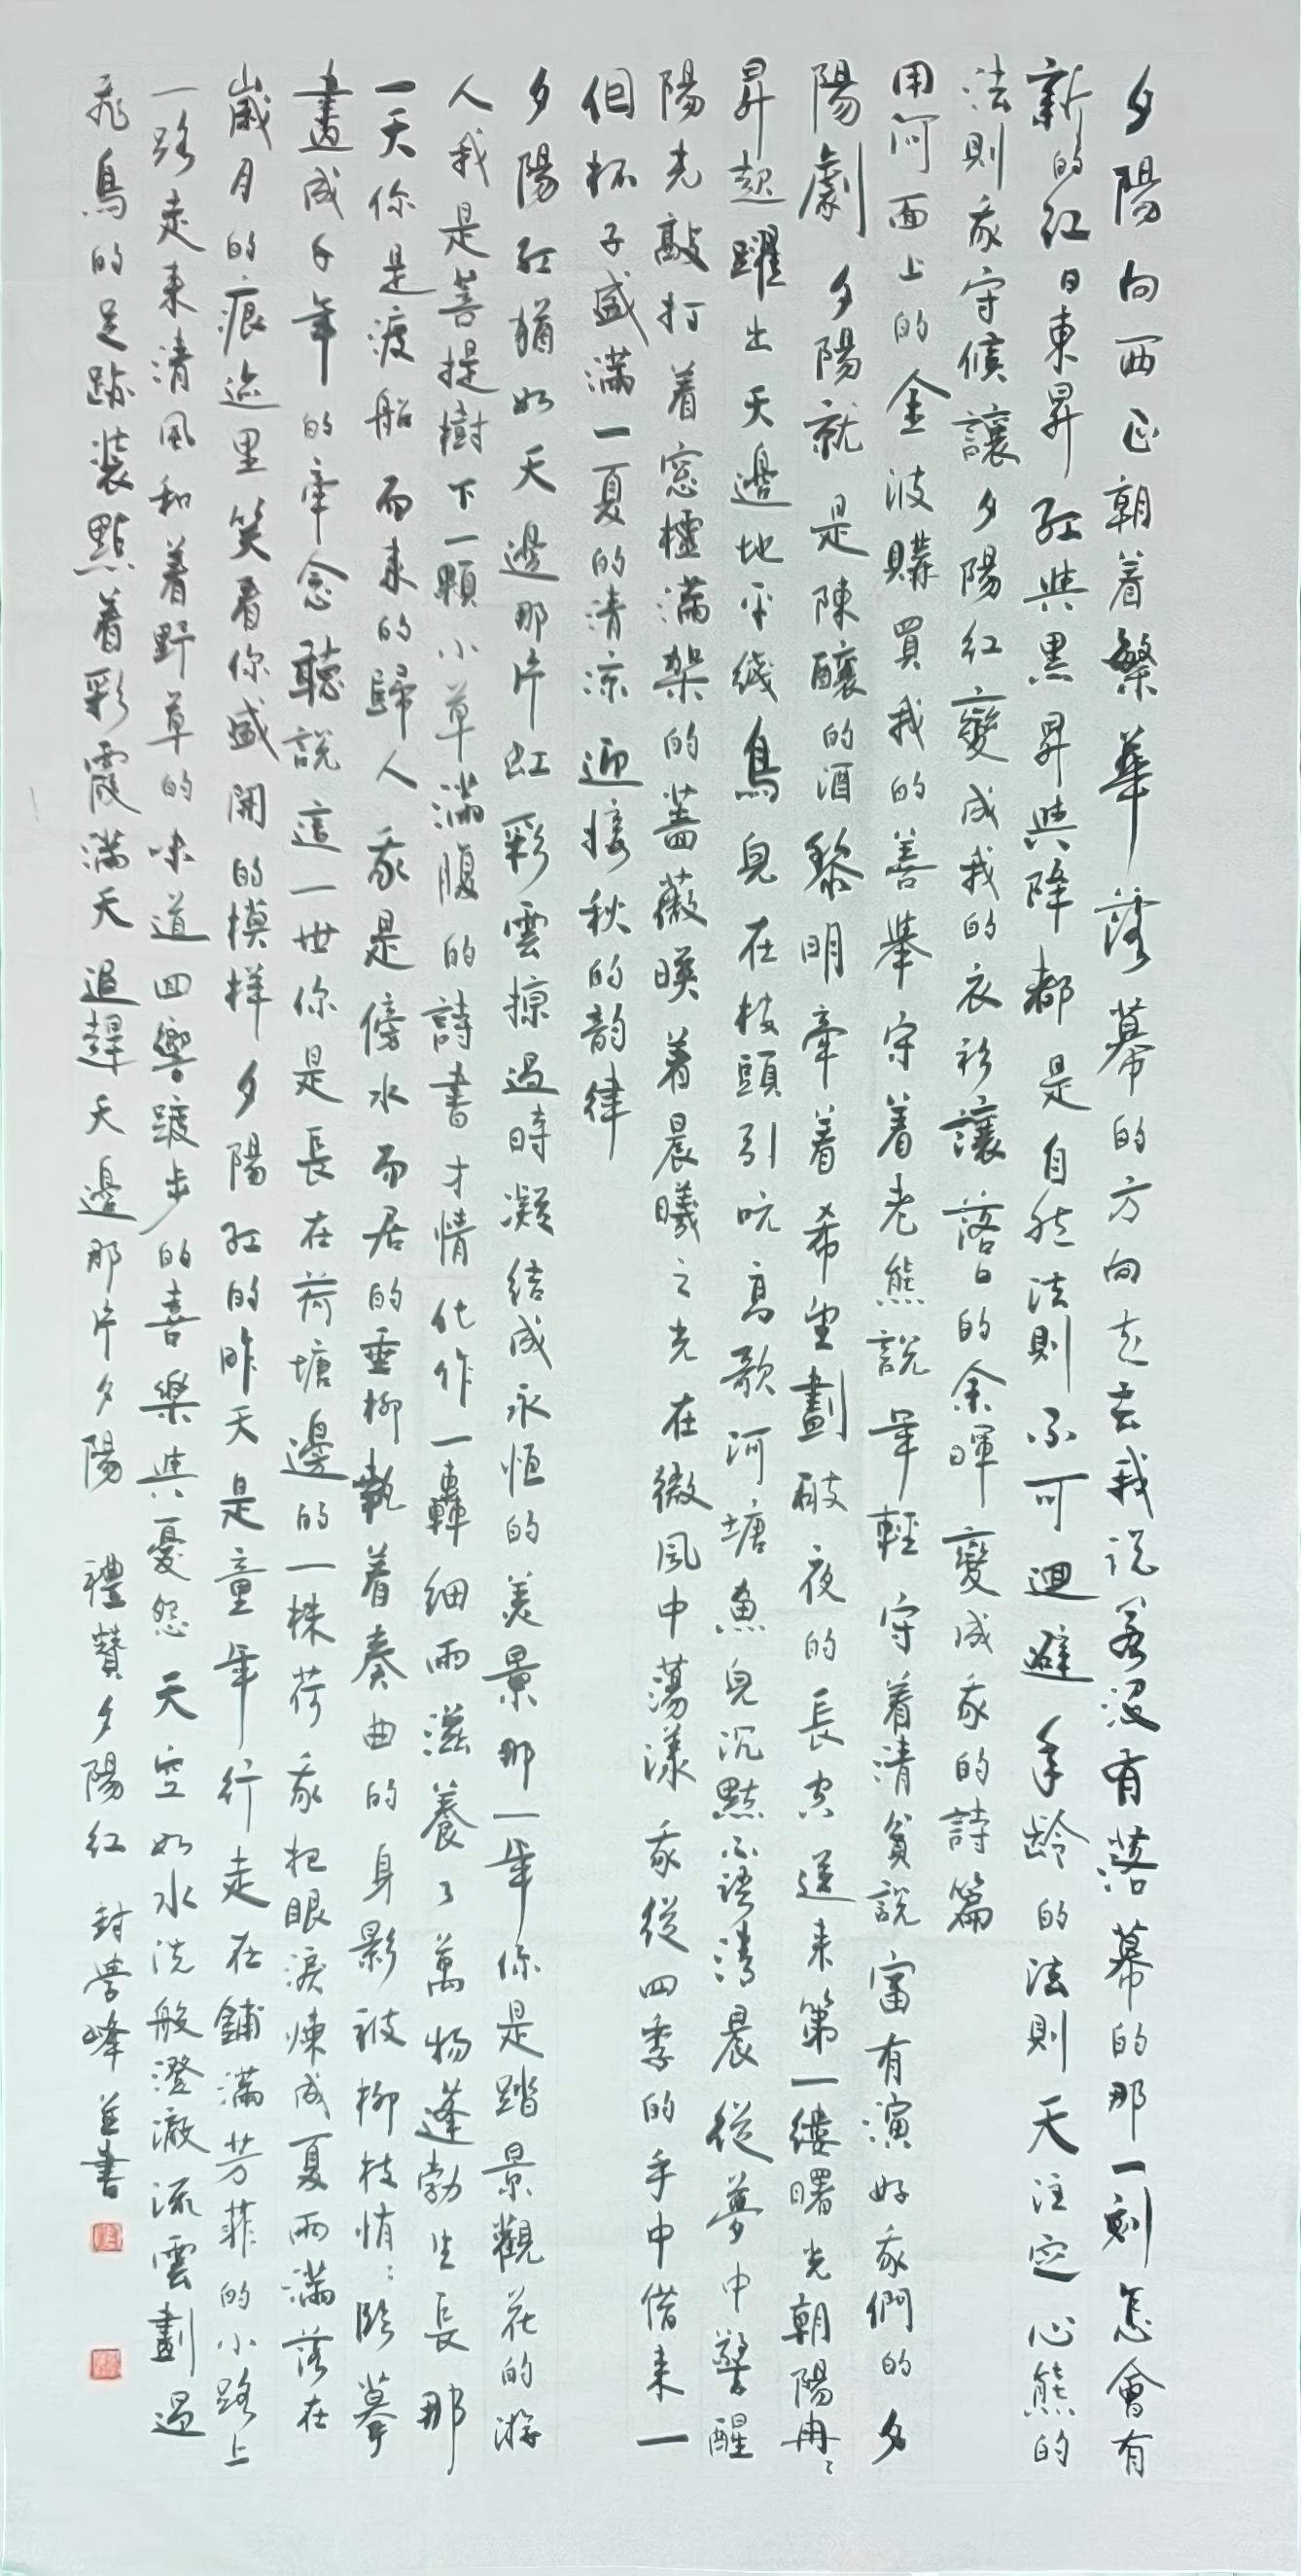 夕陽向西正朝着繁華落幕的方向走去我说若没有落幕的那一刻怎會有
新的紅日東昇紅與黑昇與降都是自然法則不可迴避年龄的法則天注定心熊的
法則我守候讓夕陽紅變成我的衣衫讓落日的余暉變成我的詩篇
用河面上的金波購買我的善舉守着老熊說年輕守着清貧說富有演好我們的夕
陽劇夕陽就是陳釀的酒黎明牽着希望劃破夜的長空送来第一缕曙光朝陽冉〻
昇起躍出天邊地平线鳥兒在枝頭引吭高歌河塘魚兒沉默不語清晨從夢中警醒
陽光敲打着窓櫺滿架的蔷薇暎着晨曦之光在微風中蕩漾我從四季的手中借来一
個杯子盛滿一夏的清凉迎接秋的韵律
夕陽紅猶如天邊那片虹彩雲掠過時凝結成永恒的美景那一年你是踏景觀花的游
人我是菩提樹下一顆小草滿腹的詩書才情化作一轟细雨滋養了萬物蓬勃生長那
一天你是渡船而来的歸人我是傍水而居的垂柳執着奏曲的身影被柳枝悄〻臨摹
畫成千年的牽念聽說這一世你是長在荷塘邊的一株荷我把眼淚煉成夏雨滿落在
歲月的痕迹里笑看你盛開的模样夕陽紅的昨天是童年行走在鋪滿芳菲的小路上
一路走来清風和着野草的味道回響踱步的喜樂與憂怨天空如水洗般澄澈流雲劃過
飛鳥的足跡装點着彩霞滿天追趕天邊那片夕陽 禮贊夕陽紅 封學峰並書